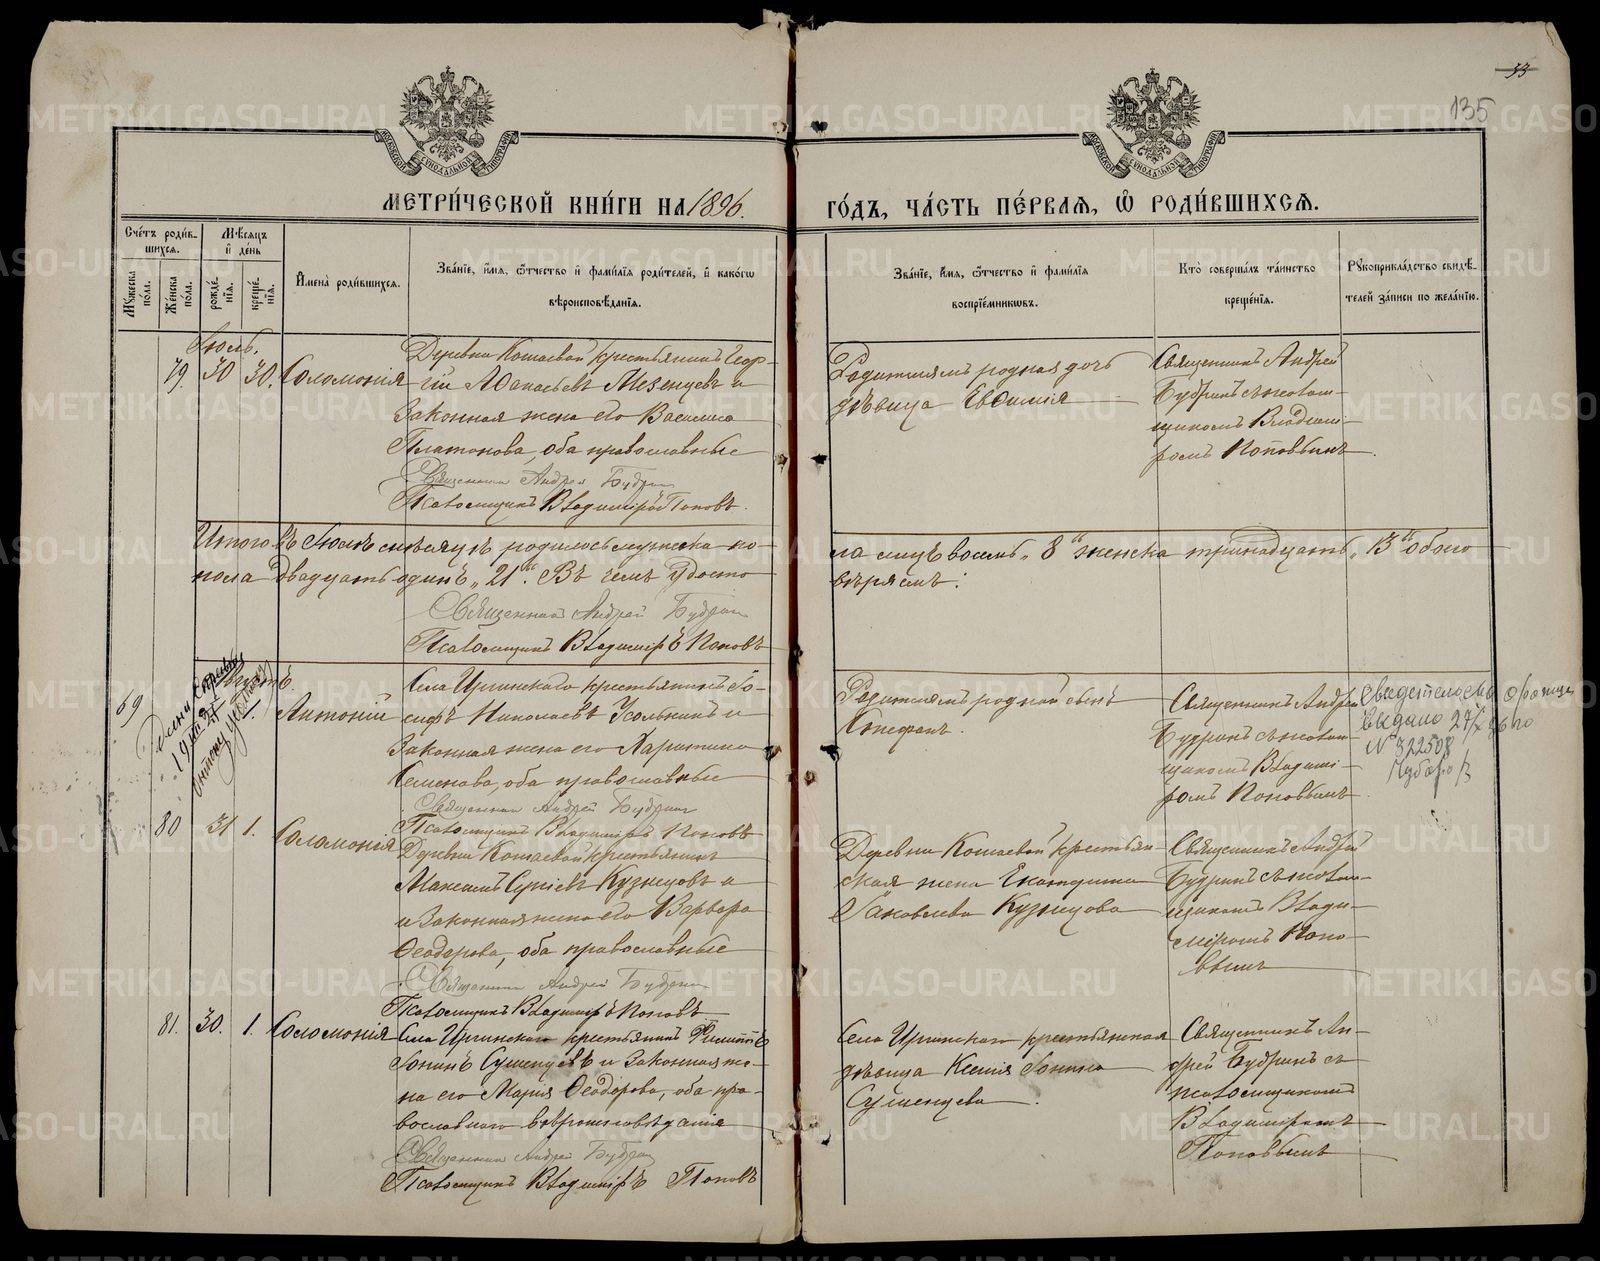 33
135
МОСКОВСКОЙ СѴНОДАЛЬНОЙ ТИПОГРАФІИ
МОСКОВСКОЙ СѴНОДАЛЬНОЙ ТИПОГРАФІИ
МЕТРИ́ЧЕСКОЙ КНИ́ГИ НА 1896.
ГО́ДЪ, ЧА́СТЬ ПЕ́РВАЯ, Ѡ РОДИ́ВШИХСЯ.
Сче́тъ роди́в-
шихся.
Мѣ́сяцъ
и де́нь
Мꙋ́жеска
по́ла.
Же́нска
по́ла.
рожде́-
нія.
креще́-
нія.
И́мена̀ роди́вшихся.
Зва́ніе, и́мя, ѻ҆́тчество и фами́лія роди́телей, и како́гѡ
вѣроисповѣ́данія.
Зва́ніе, и́мя, ѻ҆́тчество и фами́лія
воспріе́мниковъ.
Кто̀ соверша́лъ та́инство
креще́нія.
Рꙋкоприкла́дство свидѣ́-
телей за́писи по жела́нію.
Іюль.
79. 30 30. Соломонія
Деревни Кошаевой крестьянинъ Геор-
гій Аѳанасьевъ Мезенцевъ и
законная жена его Василиса
Платонова, оба православные
Священникъ Андрей Будрин
Псаломщикъ Владиміръ Поповъ.
Родителямъ родная дочь
дѣвица Евѳимія
Священникъ Андрей
Будринъ съ псалом-
щикомъ Владими-
ромъ Поповымъ.
Итого въ Іюлѣ мѣсяцѣ родилось мужеска по-
ла лицъ восемь „8" женска тринадцать „13" обоего
пола двадцать одинъ „21". Въ чемъ удосто-
вѣряемъ:
Священник Андрей Будрин
Псаломщикъ Владиміръ Поповъ
Августъ.
69
Антоній
Села Иргинскаго крестьянинъ Іо-
сифъ Николаевъ Усольцевъ и
законная жена его Харитина
Семенова, оба православные
Священник Андрей Будрин
Псаломщикъ Владиміръ Поповъ
Родителямъ родной сынъ
Стефанъ.
Священникъ Андрей
Будринъ съ псалом-
щикомъ Владими-
ромъ Поповымъ.
Свидетельство о рожд.
выдано 27/X 36 по
№ 322508
80 31 1. Соломонія
Деревни Кошаевой крестьянинъ
Максимъ Сергіевъ Кузнецовъ и
и законная жена его Варвара
Ѳеодорова, оба православные
Священник Андрей Будрин
Псаломщикъ Владиміръ Поповъ
Деревни Кошаевой крестьян-
ская жена Екатерина
Іаковлева Кузнецова
Священникъ Андрей
Будринъ съ псалом-
щикомъ Влади-
міромъ Попо-
вымъ
81. 30. 1. Соломонія
Села Иргинскаго крестьянинъ Филиппъ
Іонинъ Сушенцевъ и законная же-
на его Марія Ѳеодорова, оба пра-
вославнаго вѣроисповѣданія
Священник Андрей Будрин
Псаломщикъ Владиміръ Поповъ
Села Иргинскаго крестьянская
дѣвица Ксенія Іонина
Сушенцева.
Священникъ Ан-
дрей Будринъ съ
псаломщикомъ
Владиміромъ
Поповымъ
METRIKI.GASO-URAL.RU